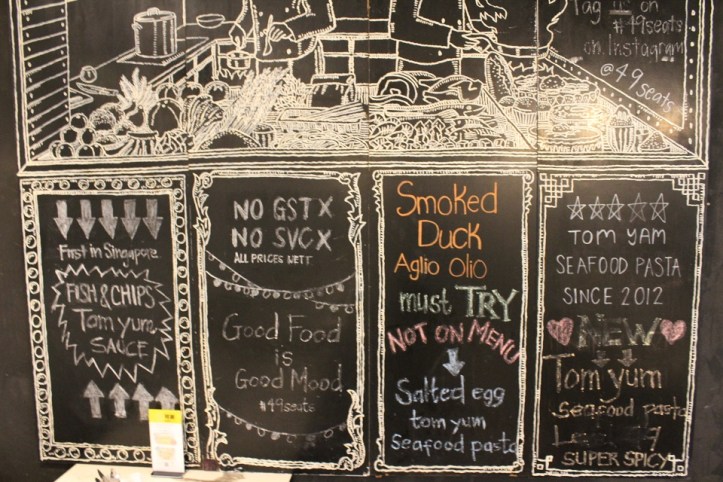 Tag us on
#49seats
on Instagram
@49seats
First in Singapore
FISH & CHIPS
Tom yum
SAUCE
NO GST X
NO SVC X
ALL PRICES NETT
Good Food
is
Good Mood
#49seats
Smoked
Duck
Aglio Olio
must TRY
NOT ON MENU
Salted egg
tom yum
Seafood pasta
TOM YAM
SEAFOOD PASTA
SINCE 2012
NEW
Tom yum
Seafood pasta
SUPER SPICY